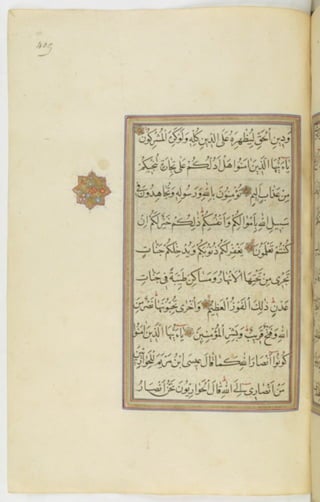 409
وَدِينِ الْحَقِّ لِيُظْهِرَهُ عَلَى الدِّينِ كُلِّهِ وَلَوْ كَرِهَ الْمُشْرِكُونَ
يَا أَيُّهَا الَّذِينَ آمَنُوا هَلْ أَدُلُّكُمْ عَلَى تِجَارَةٍ تُنْجِيكُمْ
مِنْ عَذَابٍ أَلِيمٍ تُؤْمِنُونَ بِاللَّهِ وَرَسُولِهِ وَتُجَاهِدُونَ فِي
سَبِيلِ اللَّهِ بِأَمْوَالِكُمْ وَأَنْفُسِكُمْ ذَلِكُمْ خَيْرٌ لَكُمْ إِنْ
كُنْتُمْ تَعْلَمُونَ يَغْفِرْ لَكُمْ ذُنُوبَكُمْ وَيُدْخِلْكُمْ جَنَّاتٍ
تَجْرِي مِنْ تَحْتِهَا الْأَنْهَارُ وَمَسَاكِنَ طَيِّبَةً فِي جَنَّاتِ
عَدْنٍ ذَلِكَ الْفَوْزُ الْعَظِيمُ وَأُخْرَى تُحِبُّونَهَا نَصْرٌ مِنَ
اللَّهِ وَفَتْحٌ قَرِيبٌ وَبَشِّرِ الْمُؤْمِنِينَ يَا أَيُّهَا الَّذِينَ آمَنُوا
كُونُوا أَنْصَارَ اللَّهِ كَمَا قَالَ عِيسَى ابْنُ مَرْيَمَ لِلْحَوَارِيِّينَ
مَنْ أَنْصَارِي إِلَى اللَّهِ قَالَ الْحَوَارِيُّونَ نَحْنُ أَنْصَارُ